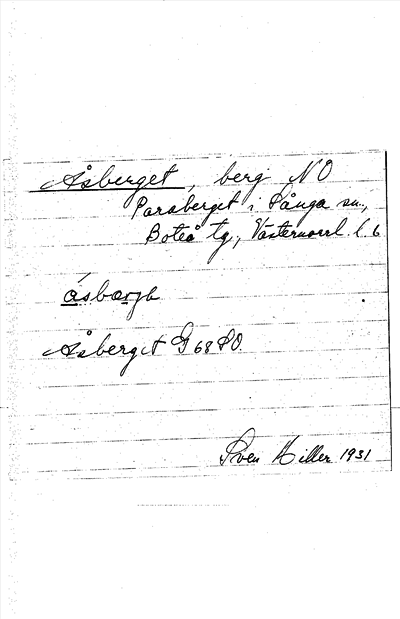 Åsberget, berg NO
Parsberget i Sånga sn.,
Boteå tg, Västernorrl. l. 6
åsbærjə
Åsberget G 68 SO.
Sven Hiller 1931